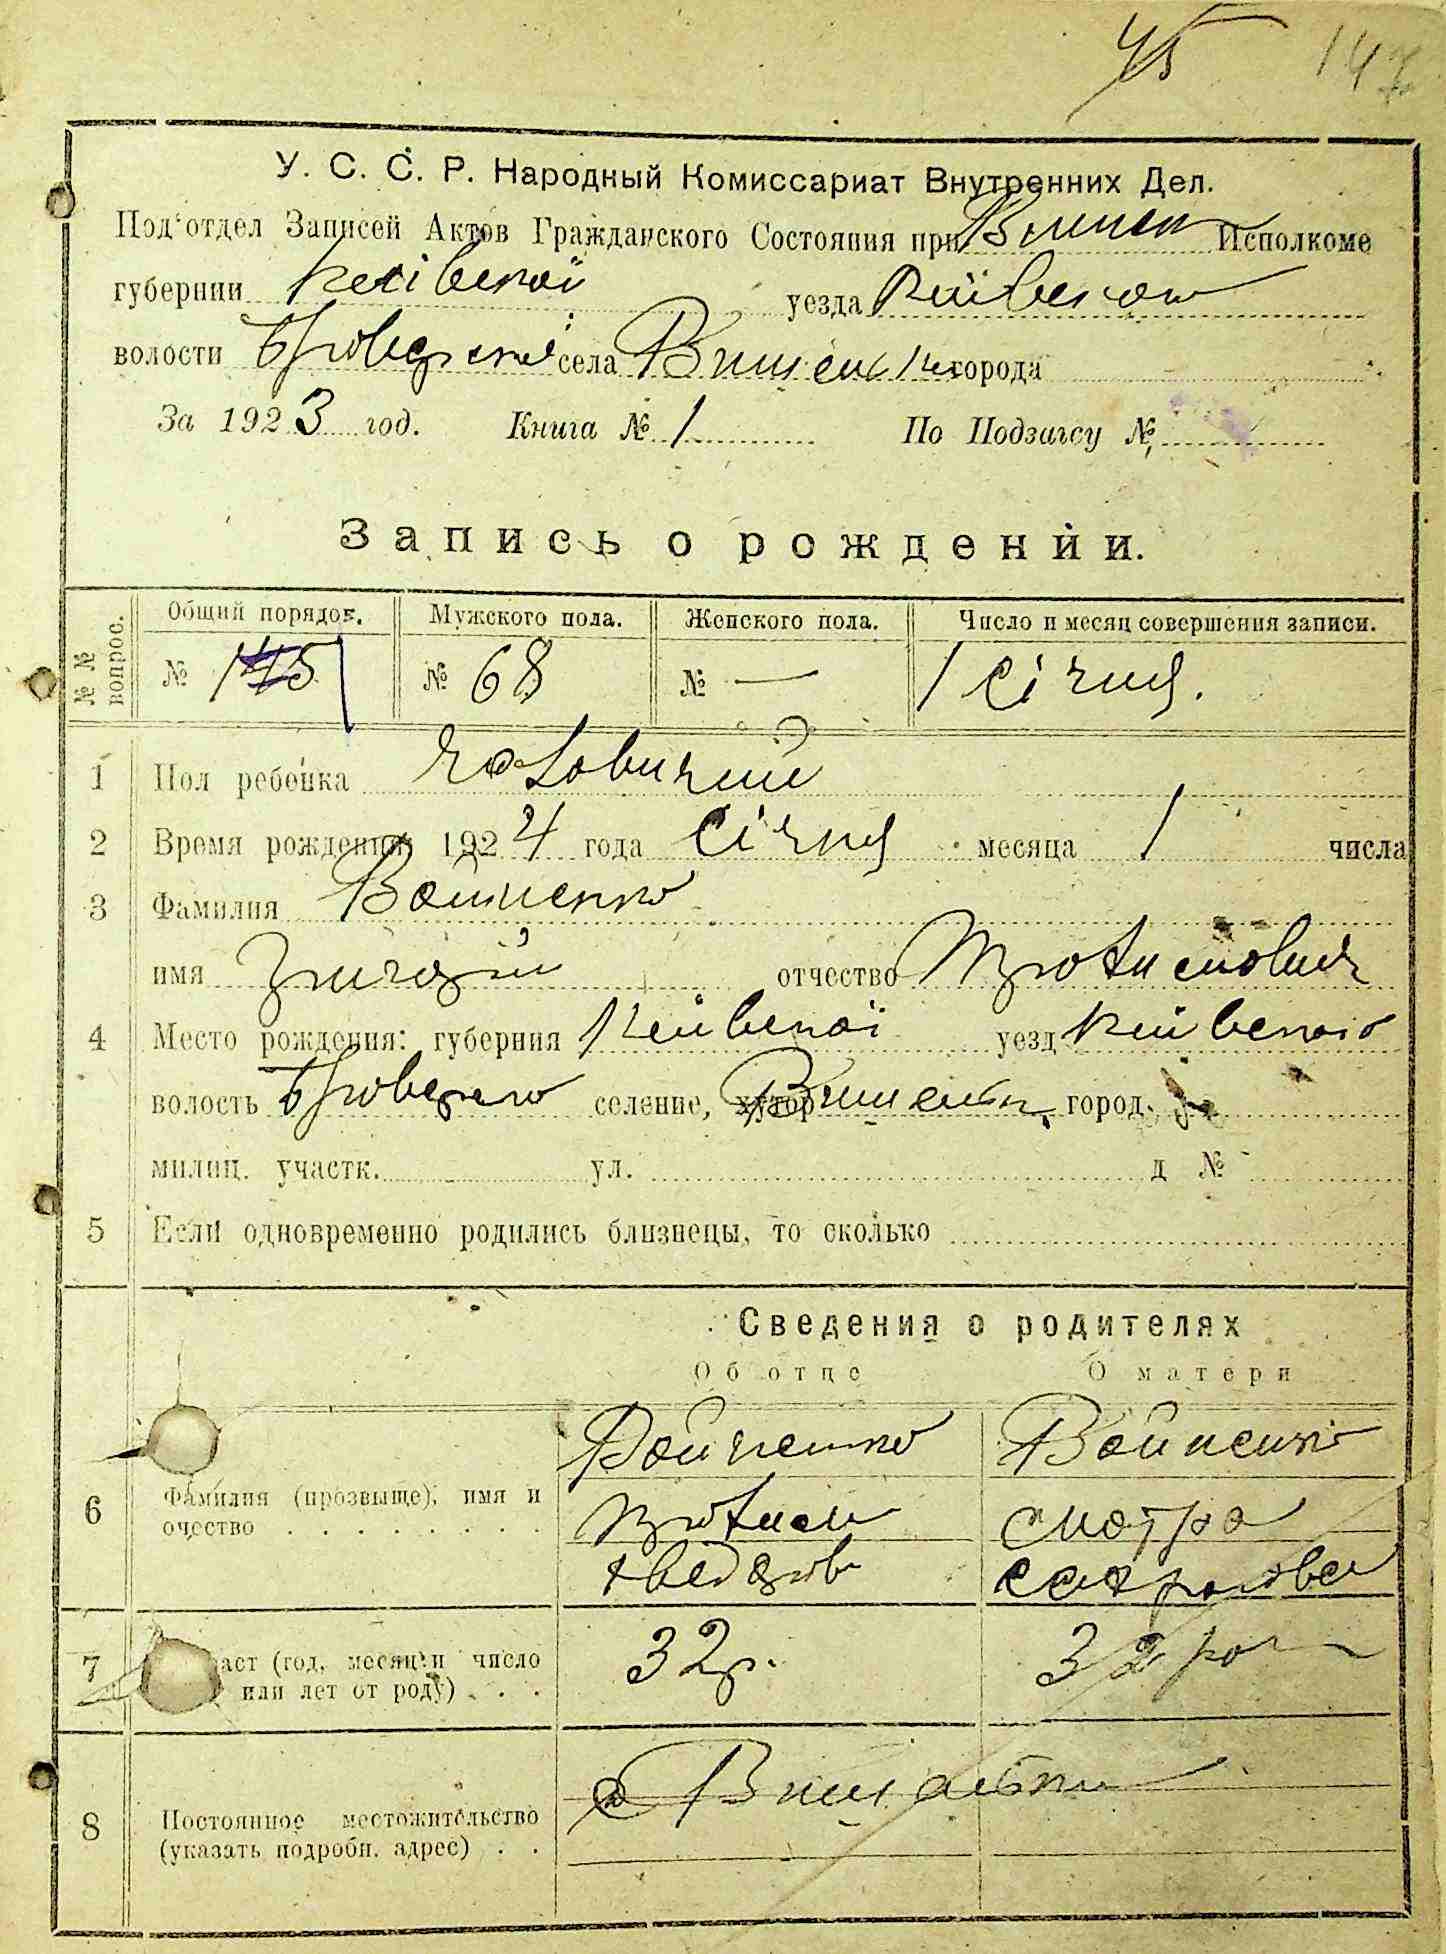 45 147
У. С. С. Р. Народный Комиссариат Внутренних Дел.
Под'отдел Записей Актов Гражданского Состояния при Исполкоме
губернии Київської уезда Київського
волости Броварської села Вишеньки города
За 1923 год. Книга № 1 По Подзагсу №
Запись о рождении.
№№ вопрос. Общий порядок. Мужского пола. Женского пола. Число и месяц совершения записи.
№ 145 № 68 № — 1 Січня.
1 Пол ребенка чоловичий
2 Время рождения: 1924 года Січня месяца 1 числа
3 Фамилия Войченко
имя отчество
4 Место рождения: губерния Київської уезд Київського
волость селение, хутор Вишеньки город
милиц. участк. ул. д №
5 Если одновременно родились близнецы, то сколько
Сведения о родителях
Об отце О матери
Войченко Войченко
6 Фамилия (прозвыще), имя и
очество
7 аст (год, месяц и число 32р. 32 рок
или лет от роду)
с Вишеньки
8 Постоянное местожительство
(указать подробн. адрес)